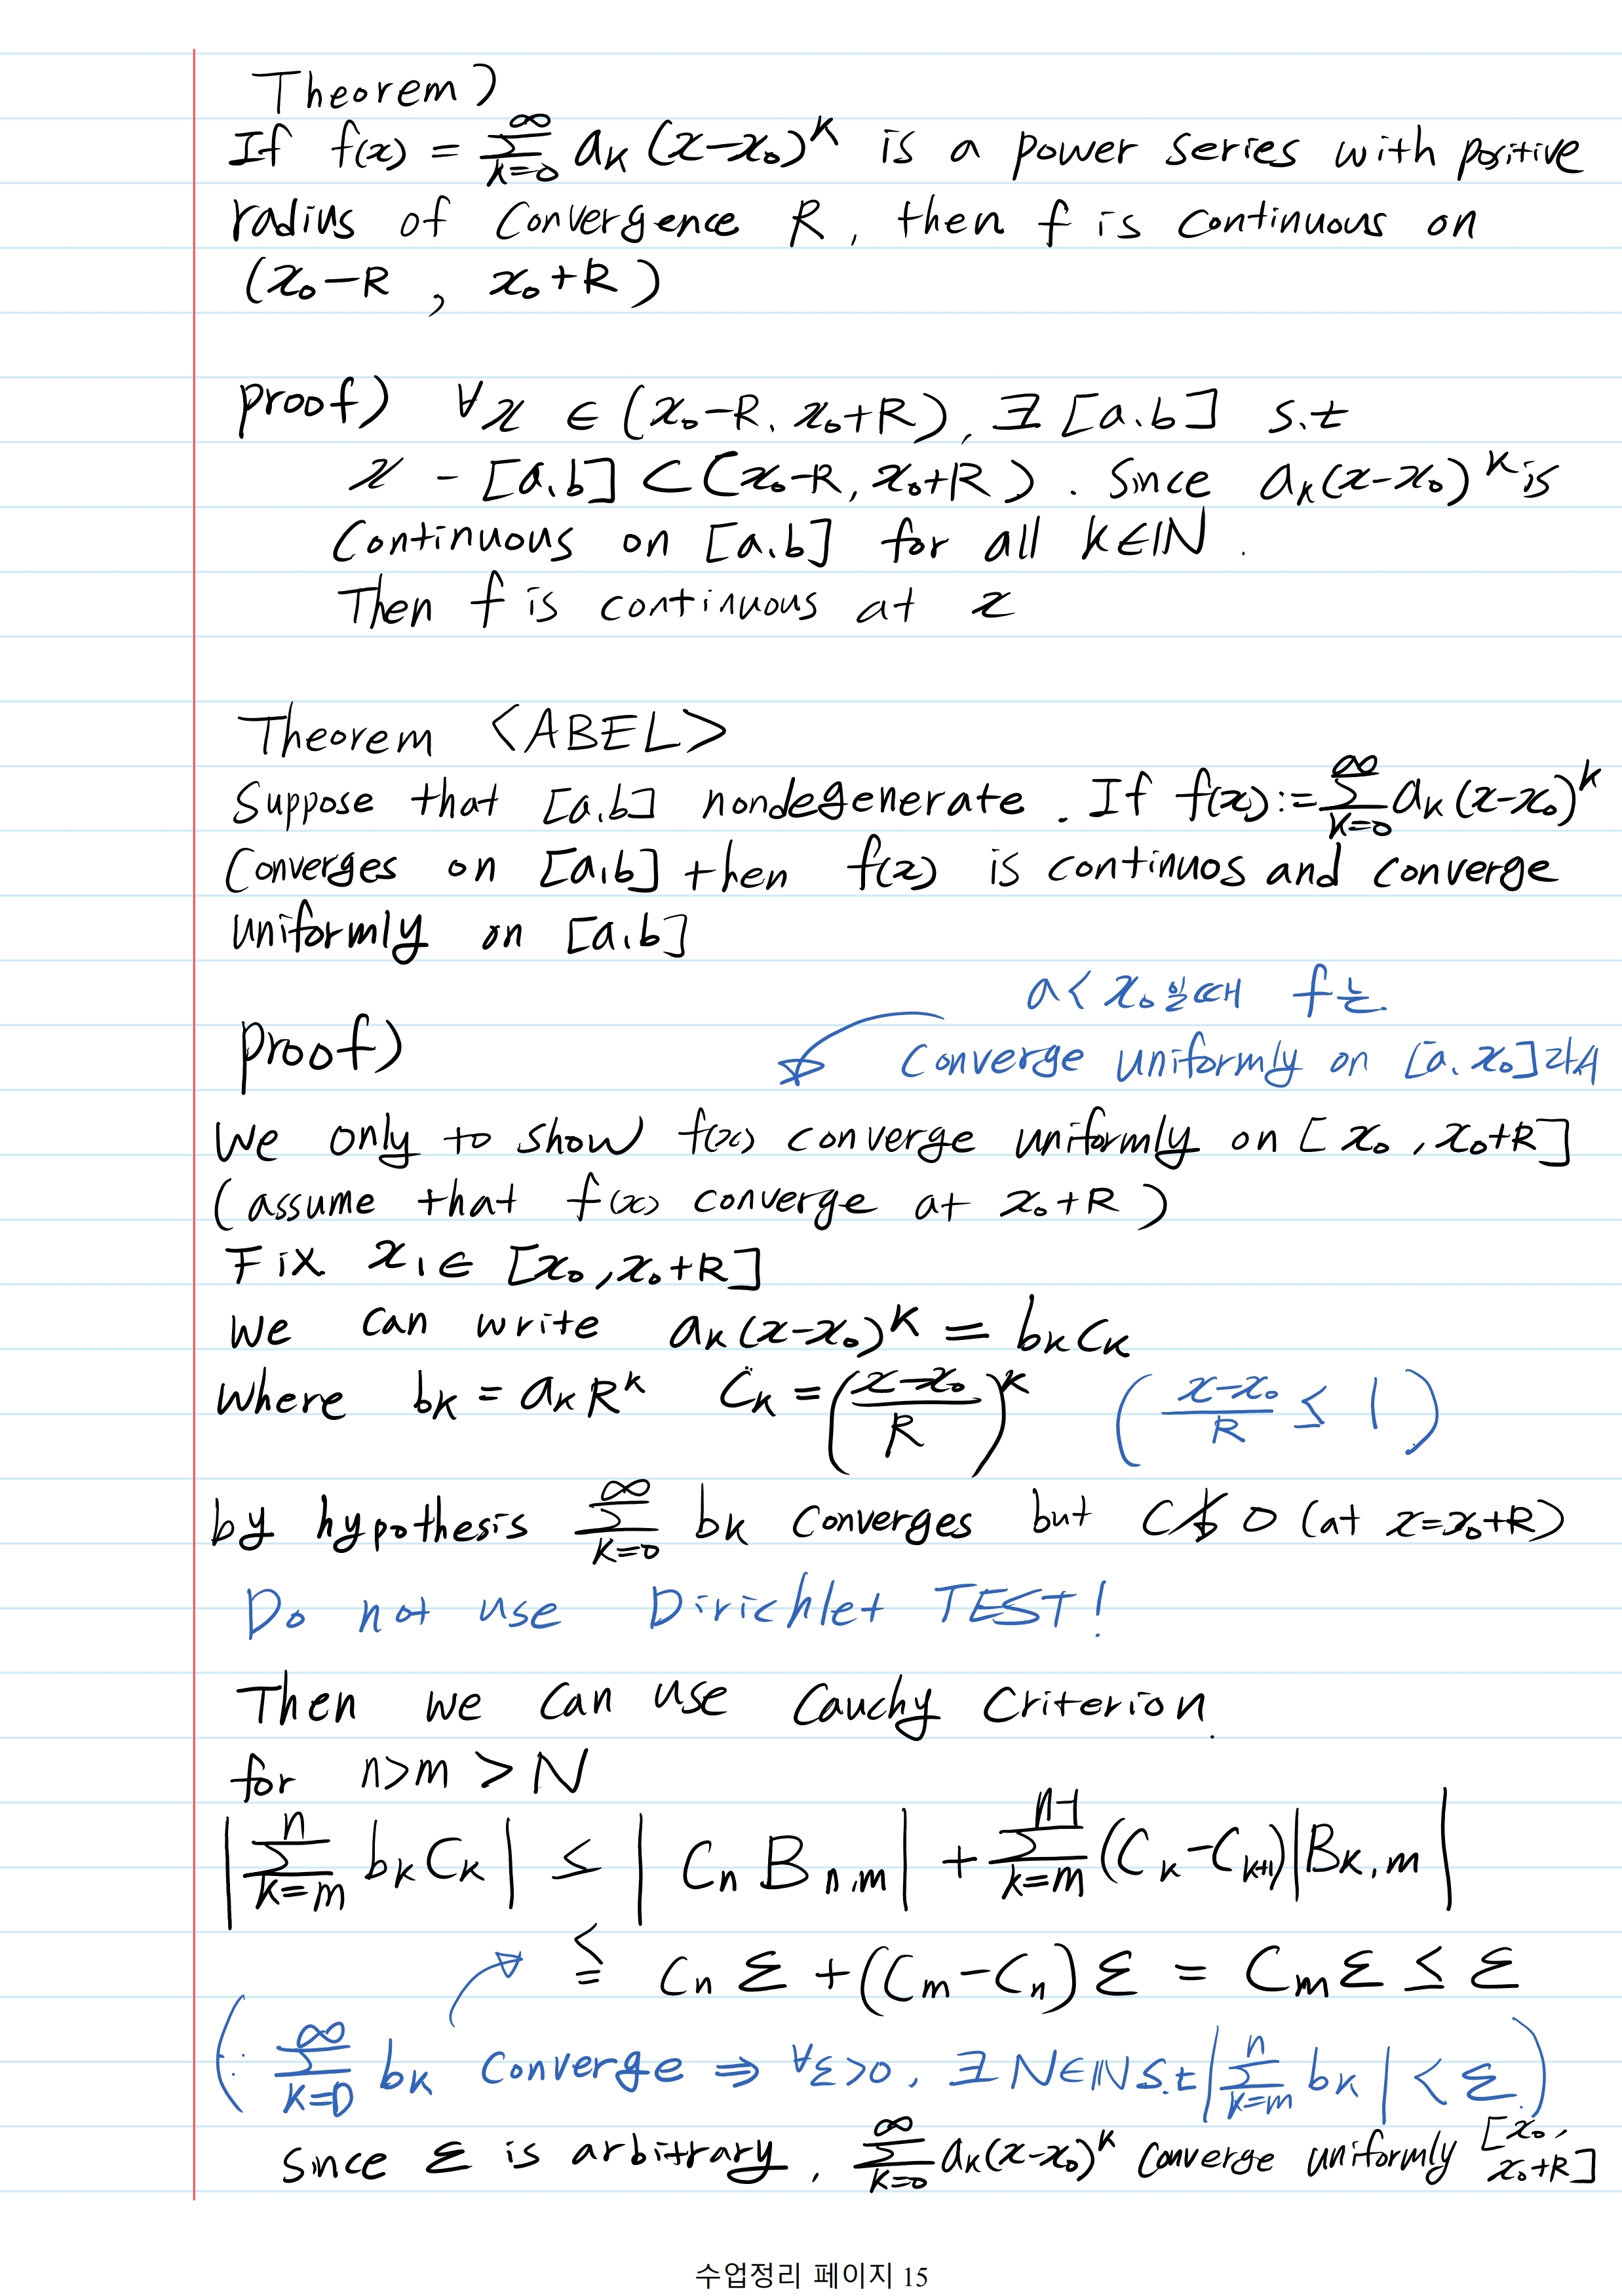 Theorem)
If f(x) = ∑_{k=0}^{∞} a_k (x-x_0)^k is a power series with positive
radius of convergence R, then f is continuous on
(x_0-R , x_0+R)
proof) ∀x ∈ (x_0-R. x_0+R), ∃ [a.b] s.t
x - [a.b] ⊂ (x_0-R, x_0+R). Since a_k(x-x_0)^k is
continuous on [a.b] for all k∈ℕ.
Then f is continuous at x
Theorem <ABEL>
Suppose that [a.b] nondegenerate. If f(x):=∑_{k=0}^{∞} a_k(x-x_0)^k
converges on [a,b] then f(x) is continuos and converge
uniformly on [a.b]
a< x_0일때 f는
proof)
converge uniformly on [a. x_0]
We only to show f(x) converge uniformly on [x_0 , x_0+R]
(assume that f(x) converge at x_0+R)
Fix x_1∈ [x_0,x_0+R]
we can write a_k(x-x_0)^k = b_k c_k
where b_k = a_k R^k C_k = ((x-x_0)/R)^k ( (x-x_0)/R ≤ 1 )
by hypothesis ∑_{k=0}^{∞} b_k converges but C↓̸ 0 (at x=x_0+R)
Do not use Dirichlet TEST!
Then we can use Cauchy Criterion.
for n>m > N
|∑_{k=m}^{n} b_k C_k| ≤ |C_n B_{n,m}| + ∑_{k=m}^{n-1} (C_k-C_{k+1})|B_{k,m}|
≦ C_n ε +(C_m-C_n) ε = C_m ε ≤ ε
(∵ ∑_{k=0}^{∞} b_k converge ⇒ ∀ε>0, ∃N∈ℕ s.t |∑_{k=m}^{n} b_k| < ε)
since ε is arbitrary, ∑_{k=0}^{∞} a_k(x-x_0)^k converge uniformly [x_0, x_0+R]
수업정리 페이지 15